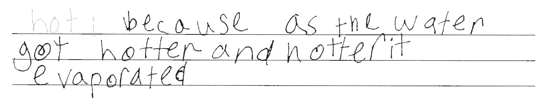 hot: because as the water
got hotter and hotter it
evaporated